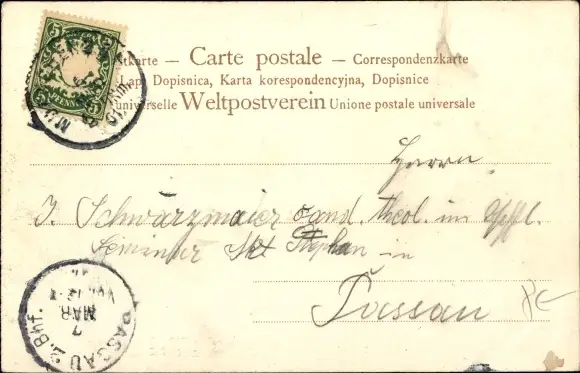 Postkarte — Carte postale — Correspondenzkarte
Lap, Dopisnica, Karta korespondencyjna, Dopisnice
universelle Weltpostverein Unione postale universale
5 5
PFENNIG
Herrn
J. Schwarzmaier cand. theol. im
Seminar St. Stephan in
Passau
PASSAU 2. Bhf.
7
MAR